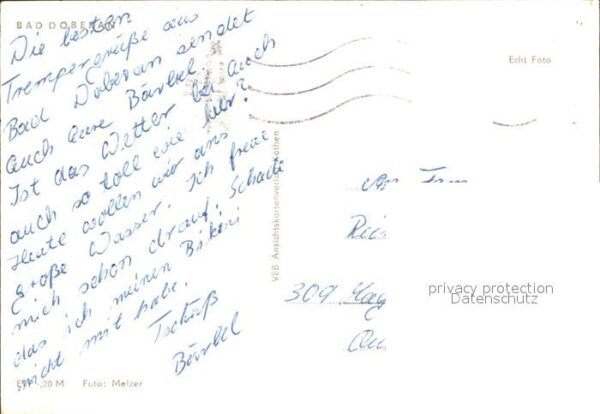 BAD DOBERAN
Die besten
Trempergrüße aus
Bad Doberan sendet
auch eure Bärbel.
Ist das Wetter bei euch
auch so toll wie hier?
Heute wollen wir ans
große Wasser. Ich freue
mich schon drauf. Schade
das ich meinen Bikini
nicht mit habe.
Tschüß
Bärbel
20 M Foto: Melzer
VEB Ansichtskartenverlag Köthen
Echt Foto
309
privacy protection
Datenschutz